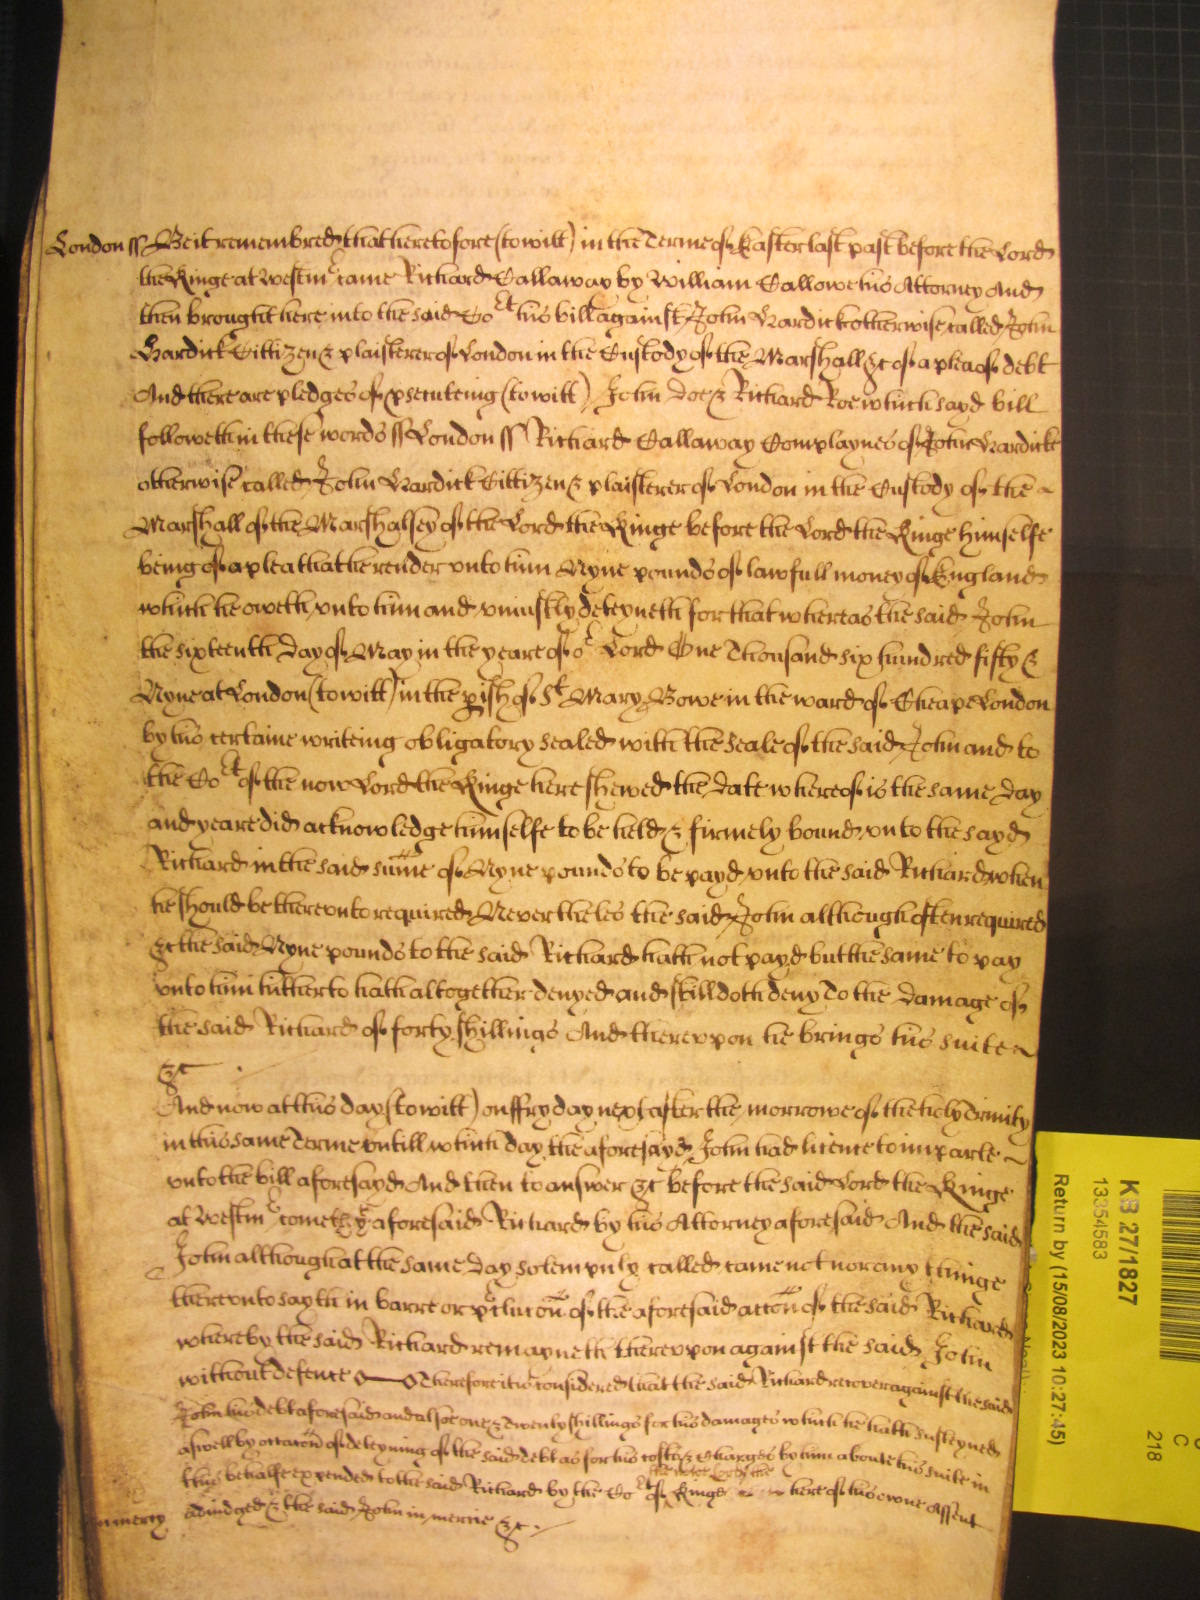 London ss Be it remembred that heretofore (to witt) in the Terme of Easter last past before the Lord
the Kinge at Westmr came Richard Callaway by William Callowe his Attorney And
then brought here into the said Cort his bill against John Hardick otherwise called John
Hardick Cittizen & plaisterer of London in the Custody of the Marshall &c of a plea of debt
And there are pledges of psecuteing (to witt) John Doe & Richard Roe which sayd bill
followeth in these words ss London ss Richard Callaway Complaynes of John Hardicke
otherwise called John Hardick Cittizen & plaisterer of London in the Custody of the
Marshall of the Marshalsey of the Lord the Kinge before the Lord the Kinge himselfe
being of a plea that he render unto him Nyne pounds of lawfull money of England
which he oweth unto him and uniustly deteyneth for that whereas the said John
the sixteenth day of May in the yeare of or Lord One Thousand six hundred fifty &
Nyne at London (to witt) in the pish of St Mary Bowe in the ward of Cheape London
by his certaine writeing obligatory sealed with the seale of the said John and to
the Cort of the now Lord the Kinge here shewed the date whereof is the same day
and yeare did acknowledge himselfe to be held & firmely bound unto the sayd
Richard in the said sume of Nyne pounds to be payd unto the said Richard when
he should be thereunto required Nevertheles the said John although often required
&c the said Nyne pounds to the said Richard hath not payd but the same to pay
unto him hitherto hath altogether denyed and still doth deny To the damage of
the said Richard of forty shillings And thereupon he brings his suite
&c
And now at this day (to witt) on ffryday next after the morrowe of the holy Trinity
in this same Terme untill which day the aforesayd John had licence to imparle
unto the bill aforesayd And then to answer &c before the said Lord the Kinge
at Westmr cometh ye aforesaid Richard by his Attorney aforesaid And the said
John although at the same day solempnly called came not nor any thinge
thereunto sayth in barre or pclucon of the aforesaid accon of the said Richard
whereby the said Richard remayneth thereupon against the said John
without defence Therefore it is considered that the said Richard recover against the said
John his debt aforesaid and alsoe one & twenty shillings for his damages which he hath susteyned
aswell by occacon of deteyning of the said debt as for his costs & Charges by him aboute his suite in
the now Lord the
this behalfe expended to the said Richard by the Cort of Kinge here of his owne assent
in mercy adiudged & the said John in mercie &c
KB 27/1827
13354583
Return by (15/08/2023 10:27:45)
C
218